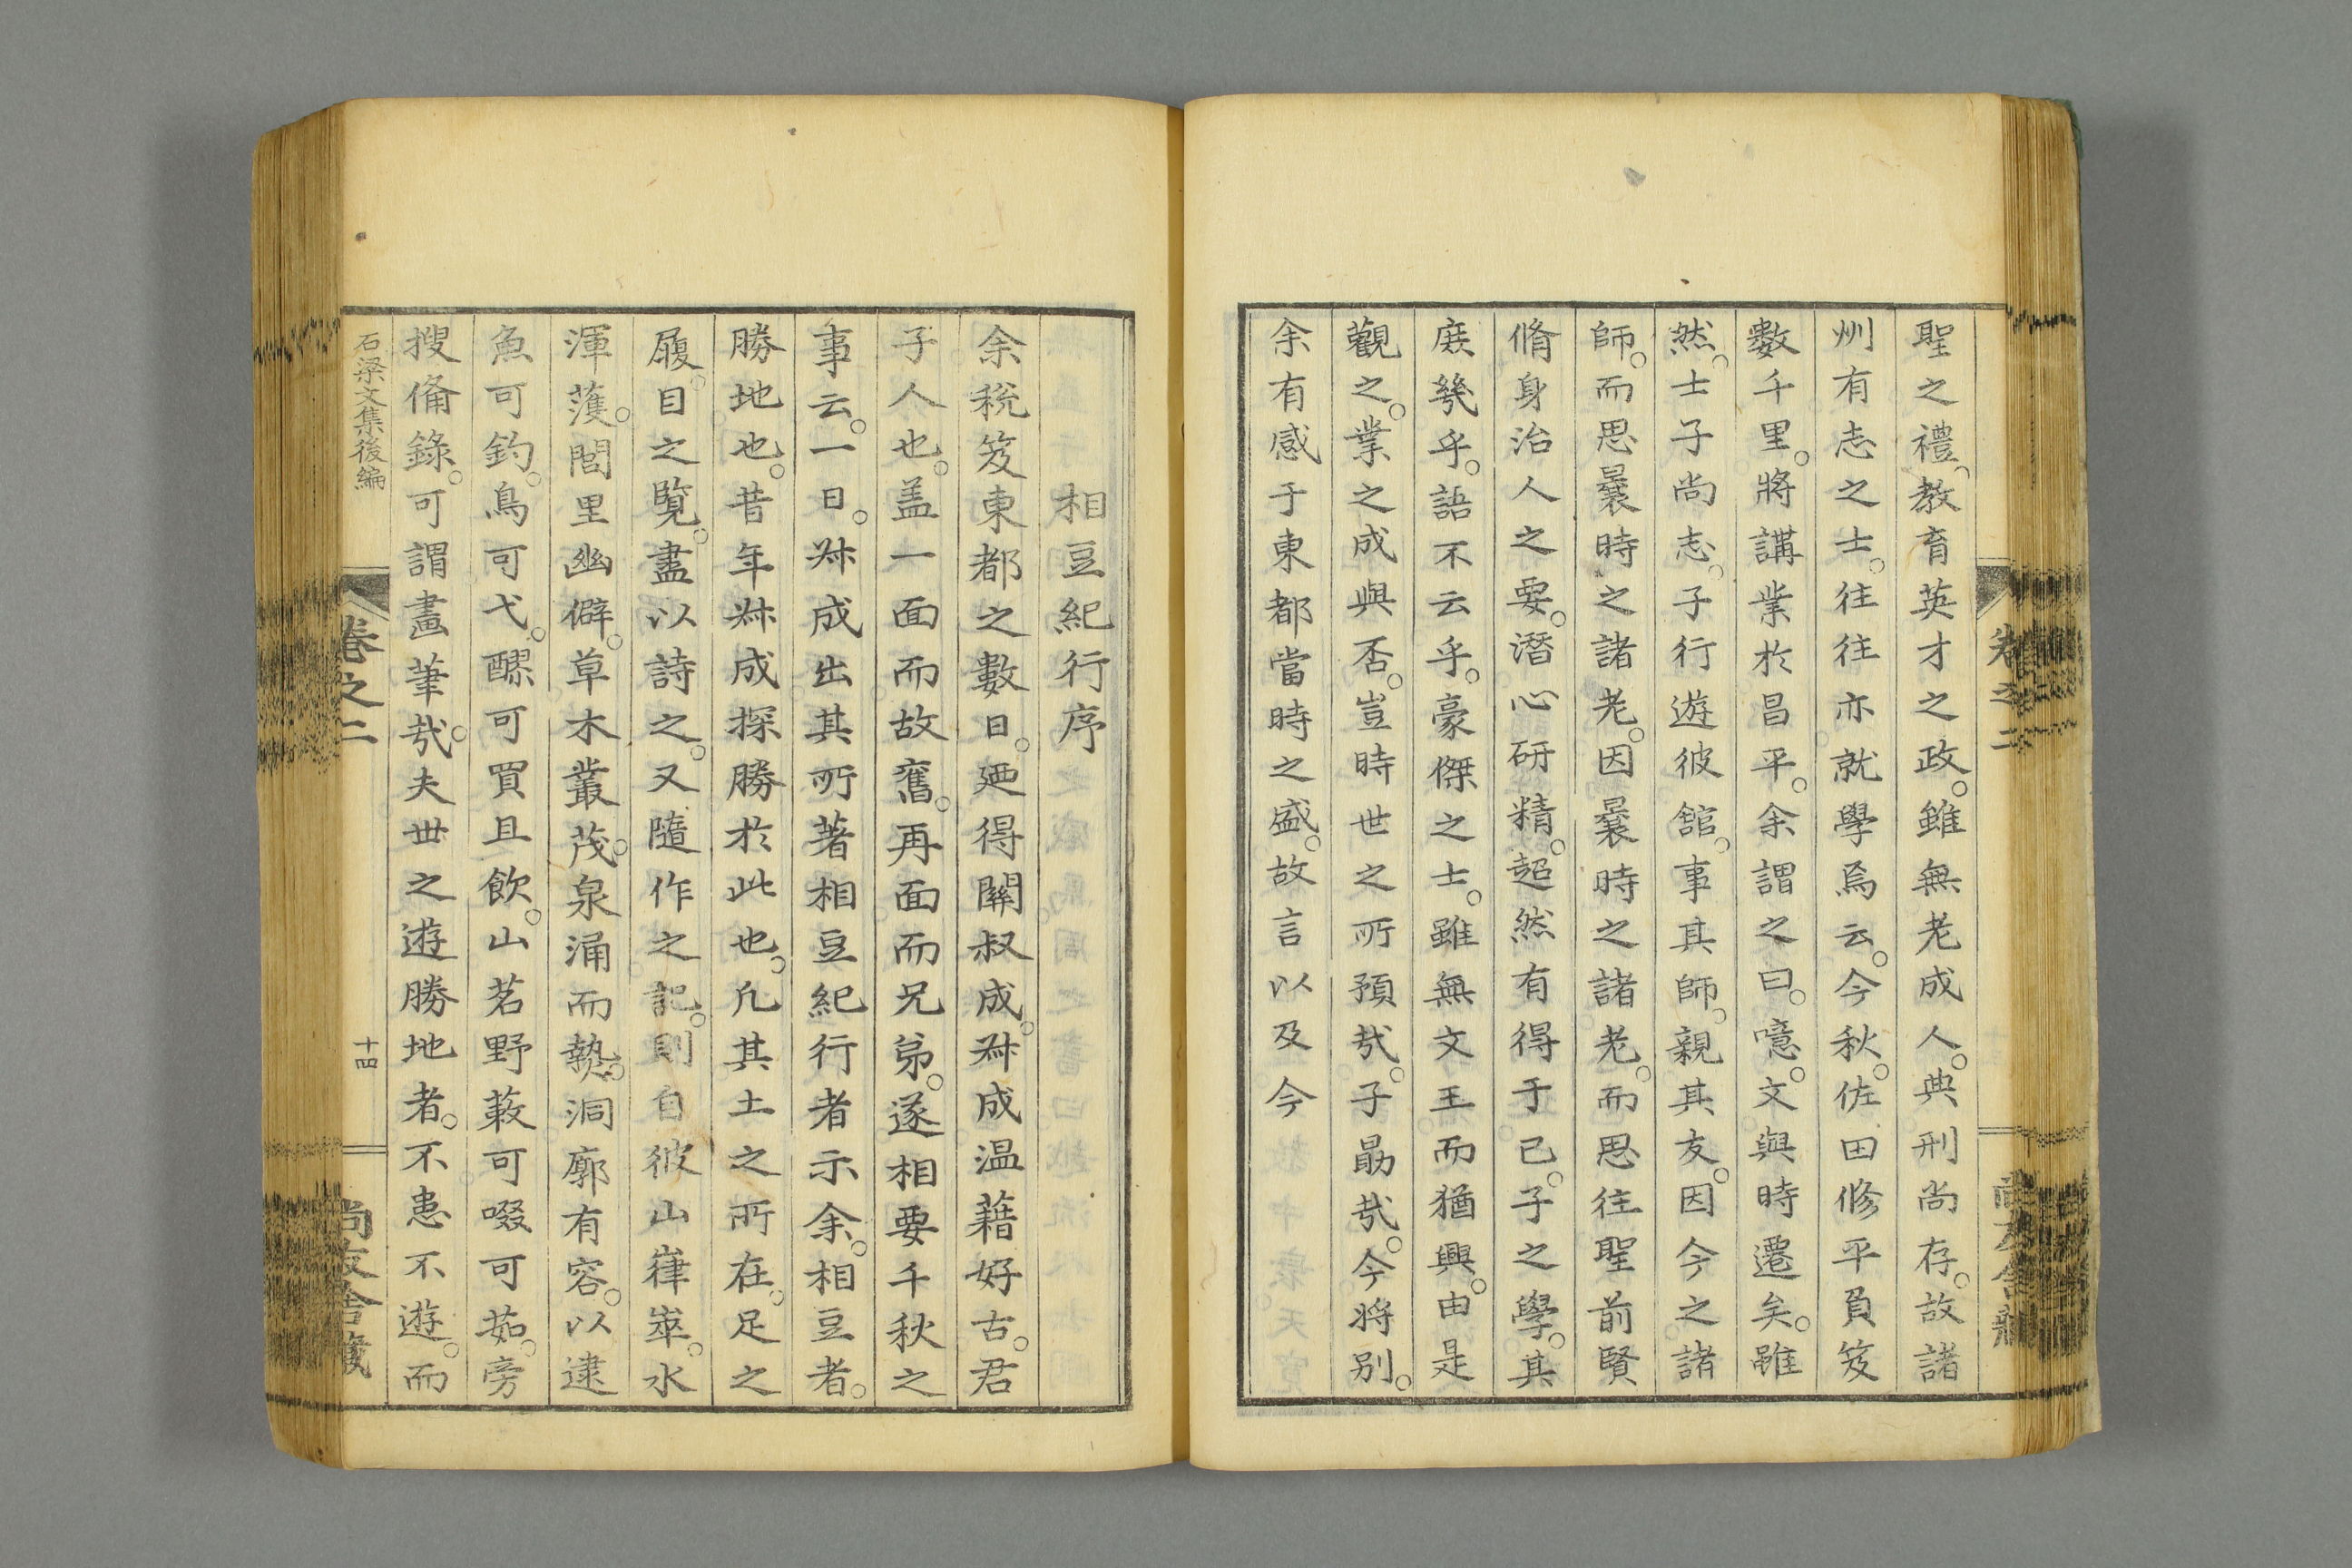 聖之禮教育英才之政。雖無老成人。典刑尚存。故諸
州有志之士。往往亦就學焉云。今秋。佐田修平負笈
數千里。將講業於昌平。余謂之曰。噫。文與時遷矣。雖
然。士子尚志。子行遊彼舘。事其師。親其友。因今之諸
師。而思曩時之諸老。因曩時之諸老。而思往聖前賢
脩身治人之要。潛心研精。超然有得于己。子之學。其
庶幾乎。語不云乎。豪傑之士。雖無文王而猶興。由是
觀之。業之成與否。豈時世之所預哉。子勗哉。今將別。
余有感于東都當時之盛。故言以及今
卷之二
相豆紀行序
余稅笈東都之數日。廼得關叔成。叔成温藉好古。君
子人也。盖一面而故舊。再面而兄弟。遂相要千秋之
事云。一日。叔成出其所著相豆紀行者示余。相豆者。
勝地也。昔年叔成探勝於此也。凡其土之所在。足之
履。目之覽。盡以詩之。又隨作之記。則自彼山嵂崒。水
渾濩。閭里幽僻。草木叢茂。泉涌而𤍠。洞廓有容。以逮
魚可釣。鳥可弋。醪可買且飲。山茗野蔌可啜可茹。旁
搜備錄。可謂畫筆哉。夫世之遊勝地者。不患不遊。而
石梁文集後編
卷之二
十四
尚友舍藏